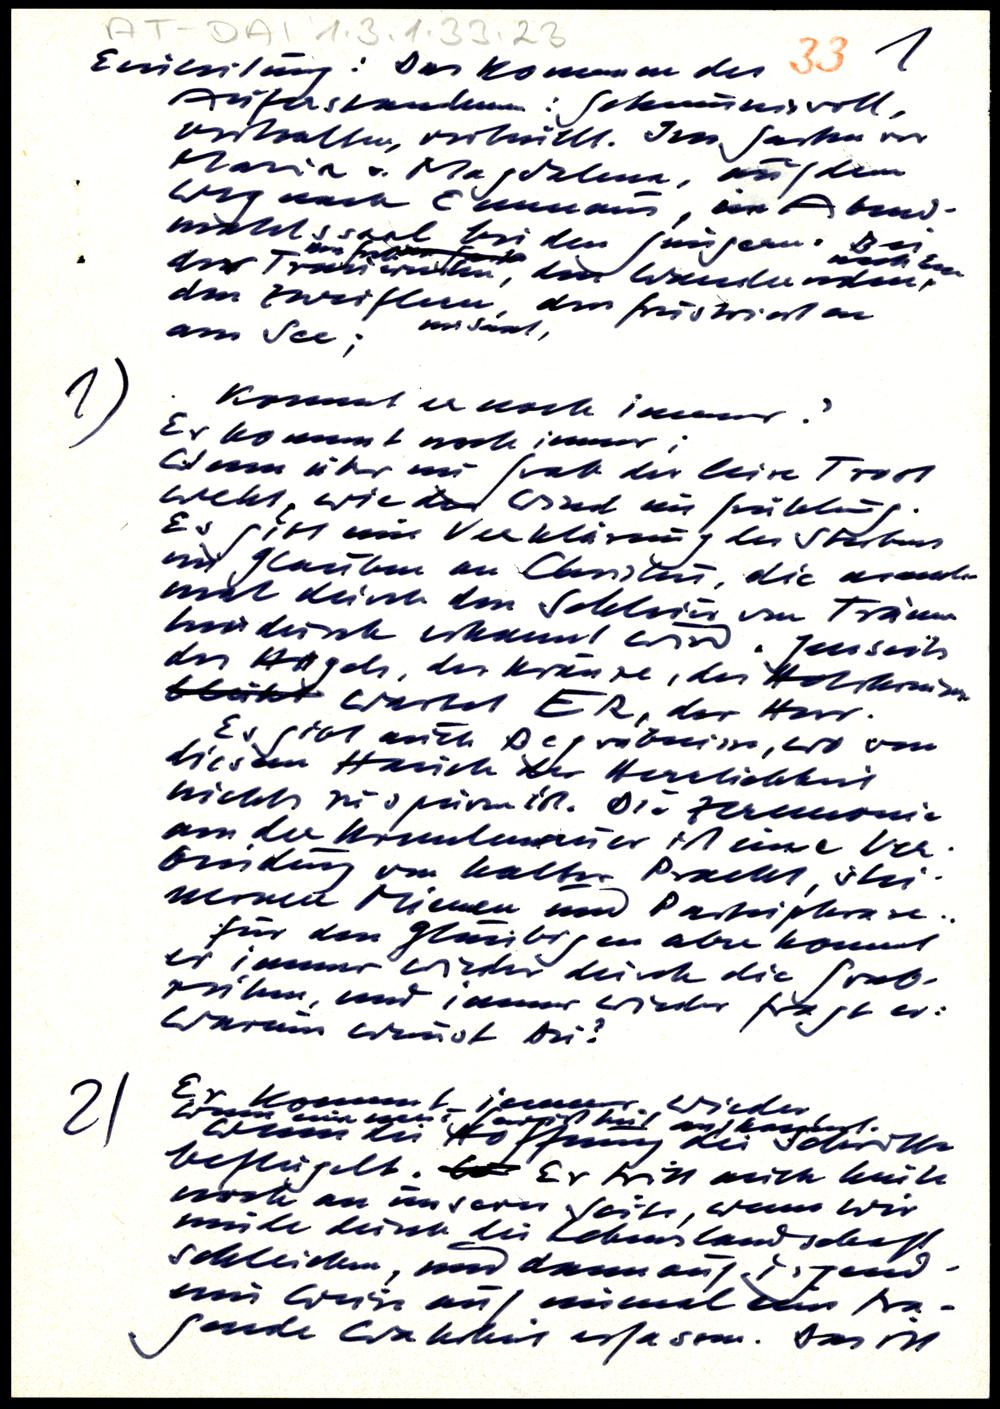 AT-DAI 1.3.1.33.23
33 1
Einleitung: Das Kommen des
Auferstandenen: Geheimnisvoll,
verhalten, verhüllt. Im Garten vor
Maria v. Magdalena, auf dem
Weg nach Emmaus, im Abend-
mahlssaal bei den Jüngern. Bei
der Trauernden, den Wandernden,
den Zweiflern, den frustrierten
am See;
1)
Kommt er noch immer?
Er kommt noch immer;
Wenn über ein Grab der leise Trost
weht, wie der Wind im Frühling.
Es gibt eine Verklärung des Sterbens
im Glauben an Christus, die manch-
mal durch den Schleier von Tränen
hindurch erkannt wird. Jenseits
des Hügels, der Kränze, des Holzkreuzes
bleibt wartet ER, der Herr.
Es gibt auch Begräbnisse, wo von
diesem Hauch der Herrlichkeit
nichts zu spüren ist. Die Zeremonie
an der Kremlmauer ist eine Ver-
bindung von kalter Pracht, stei-
nernen Mienen und Parteiphrase..
Für den Gläubigen aber kommt
er immer wieder durch die Grab-
reihen, und immer wieder fragt er:
Warum weinst Du?
2)
Er kommt immer wieder,
wenn die Hoffnung die Schritte
beflügelt. Er tritt auch heute
noch an unsere Seite, wenn wir
müde durch die Lebenslandschaft
schleichen, und dann auf irgend-
eine Weise auf einmal eine tra-
gende Wahrheit erfassen. Das ist